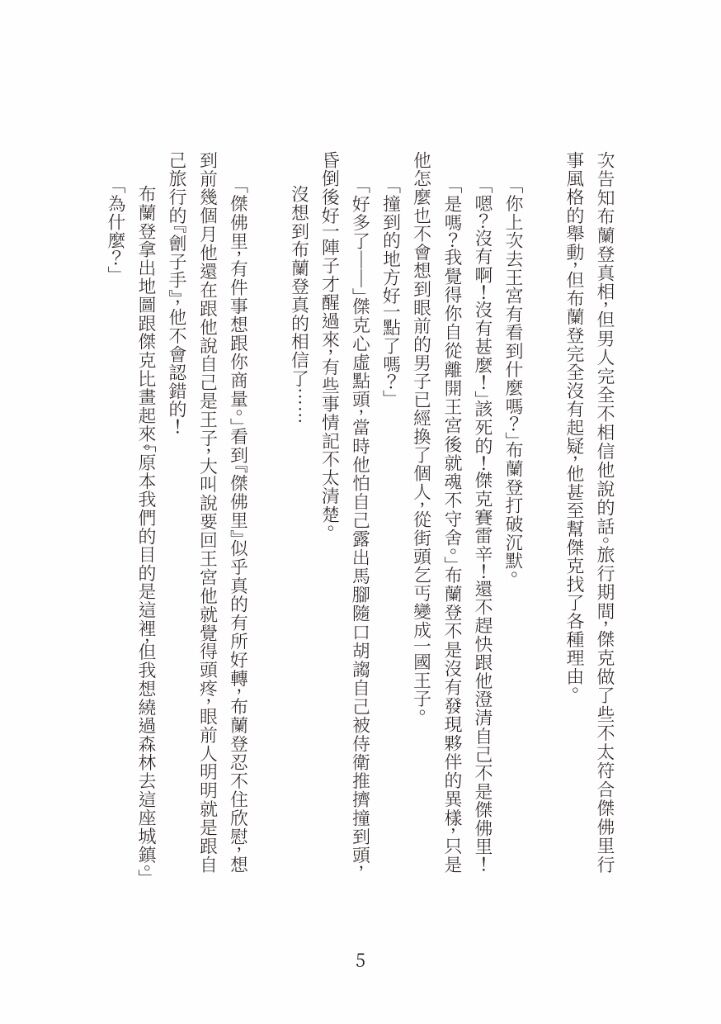 次告知布蘭登真相，但男人完全不相信他說的話。旅行期間，傑克做了些不太符合傑佛里行
事風格的舉動，但布蘭登完全沒有起疑，他甚至幫傑克找了各種理由。
「你上次去王宮有看到什麼嗎？」布蘭登打破沉默。
「嗯？沒有啊！沒有甚麼！」該死的！傑克賽雷辛！還不趕快跟他澄清自己不是傑佛里！
「是嗎？我覺得你自從離開王宮後就魂不守舍。」布蘭登不是沒有發現夥伴的異樣，只是
他怎麼也不會想到眼前的男子已經換了個人，從街頭乞丐變成一國王子。
「撞到的地方好一點了嗎？」
「好多了——」傑克心虛點頭，當時他怕自己露出馬腳隨口胡謅自己被侍衛推擠撞到頭，
昏倒後好一陣子才醒過來，有些事情記不太清楚。
沒想到布蘭登真的相信了……
「傑佛里，有件事想跟你商量。」看到『傑佛里』似乎真的有所好轉，布蘭登忍不住欣慰，想
到前幾個月他還在跟他說自己是王子，大叫說要回王宮他就覺得頭疼，眼前人明明就是跟自
己旅行的『劊子手』，他不會認錯的！
布蘭登拿出地圖跟傑克比畫起來。「原本我們的目的是這裡，但我想繞過森林去這座城鎮。」
「為什麼？」
5